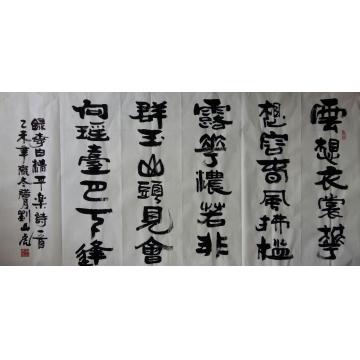 雲想衣裳華
想容春風拂檻
露華濃若非
群玉山頭見會
向瑤臺月下逢
錄李白清平樂詩一首
乙未年冬劉山虎